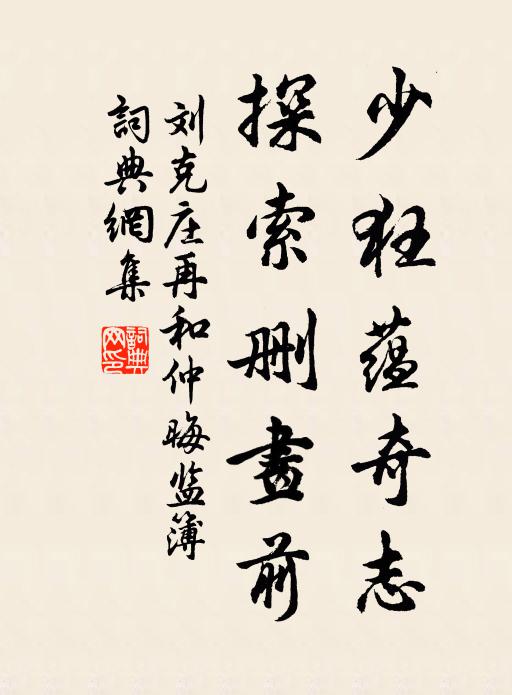 少狂蕴奇志
探索删畫前
刘克庄再和仲晦监簿
詞典網集
詞典網印